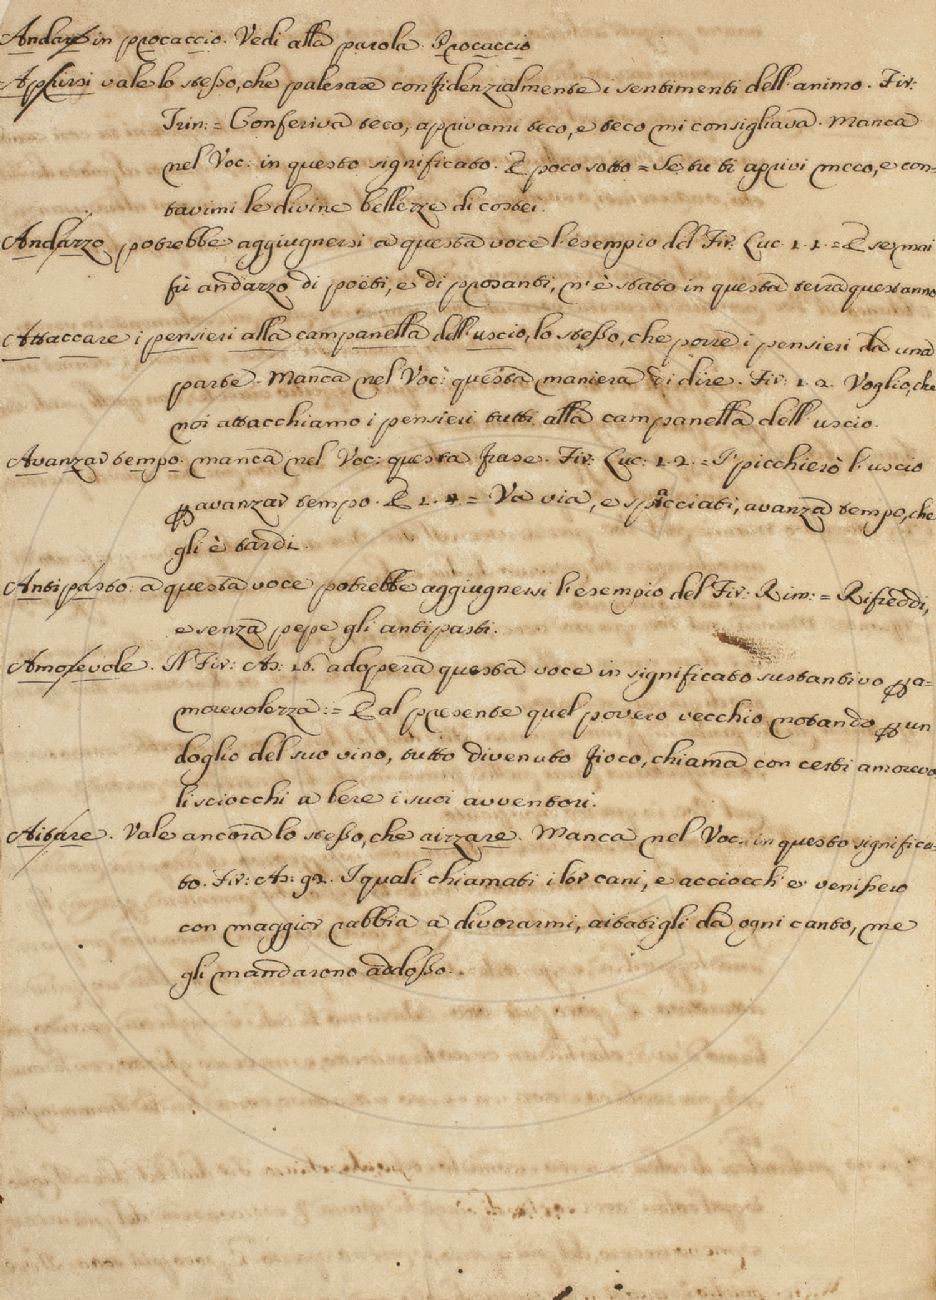 Andare in procaccio. Vedi alla parola Procaccio
Aprirsi vale lo stesso, che palesare confidenzialmente i sentimenti dell'animo. Fir:
Trin: = Conferiva teco, aprivami teco, e teco mi consigliava. Manca
nel Voc: in questo significato. E poco sotto = Se tu ti aprivi meco, e con-
tavimi le divine bellezze di costei.
Andazzo potrebbe aggiugnersi a questa voce l'esempio del Fir: Luc. 1. 1. = E se mai
fù andazzo di poëti, e di prosanti, n'è stato in questa terra quest'anno
Attaccare i pensieri alla campanella dell'uscio, lo stesso, che porre i pensieri da una
parte. Manca nel Voc: questa maniera di dire. Fir: 1. 2. Voglio, che
noi attacchiamo i pensieri tutti alla campanella dell'uscio.
Avanzar tempo. manca nel Voc: questa frase. Fir: Luc: 1. 2. = I' picchierò l'uscio
ꝑ avanzar tempo. E 1. 4 = Va via, e spacciati, avanza tempo, che
gli è tardi.
Antipasto. a questa voce potrebbe aggiugnersi l'esempio del Fir: Rim: = Rifreddi,
e senza pepe gli antipasti.
Amorevole. Il Fir: As: 16. adopera questa voce in significato sustantivo ꝑ a-
morevolezza: = E al presente quel povero vecchio notando ꝑ un
doglio del suo vino, tutto divenuto fioco, chiama con certi amorevo
li sciocchi a bere i suoi avventori.
Aitare. Vale ancora lo stesso, che aizzare. Manca nel Voc. in questo significa-
to. Fir: As: 92. I quali chiamati i lor cani, e acciocch'e' venissero
con maggior rabbia a divorarmi, aitatigli da ogni canto, me
gli mandarono addosso.